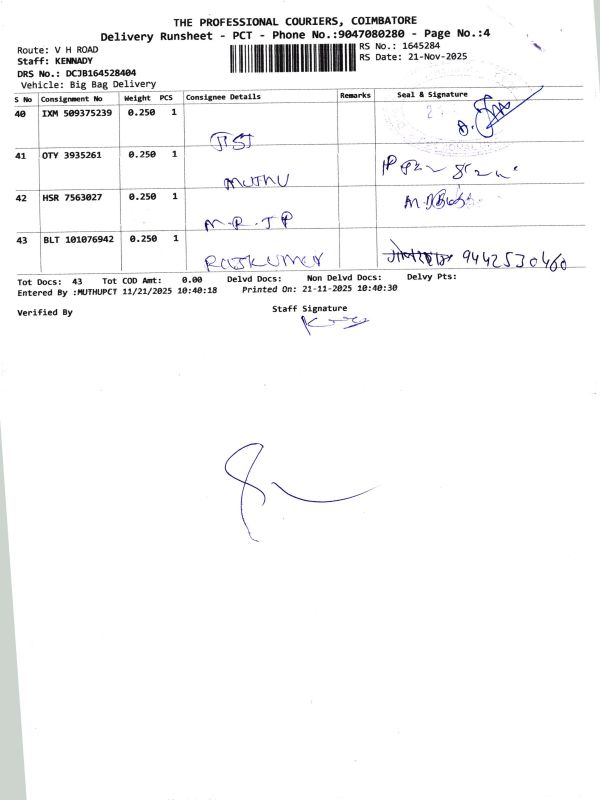 THE PROFESSIONAL COURIERS, COIMBATORE
Delivery Runsheet - PCT - Phone No.:9047080280 - Page No.:4
Route: V H ROAD
RS No.: 1645284
Staff: KENNADY
RS Date: 21-Nov-2025
DRS No.: DCJB164528404
Vehicle: Big Bag Delivery
S No Consignment No Weight PCS Consignee Details Remarks Seal & Signature
40 IXM 509375239 0.250 1
41 OTY 3935261 0.250 1
MUTHU
42 HSR 7563027 0.250 1
M.R.JP
43 BLT 101076942 0.250 1
RAJKUMAR 9442530460
Tot Docs: 43 Tot COD Amt: 0.00 Delvd Docs: Non Delvd Docs: Delvy Pts:
Entered By :MUTHUPCT 11/21/2025 10:40:18 Printed On: 21-11-2025 10:40:30
Verified By
Staff Signature